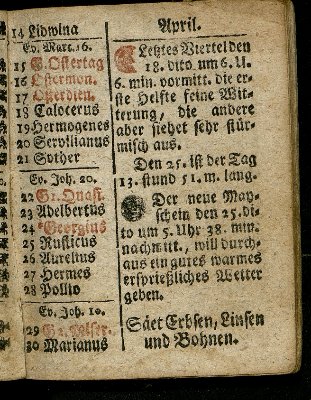 14 Lidwina
Ev. Marc. 16.
15 H. Ostertag
16 Ostermon.
17 Osterdien.
18 Calocerus
19 Hermogenes
20 Servilianus
21 Suther
Ev. Joh. 20.
22 Gr. Quasi.
23 Adelbertus
24 Georgius
25 Rusticus
26 Aurelius
27 Hermes
28 Pollio
Ev. Joh. 10.
29
30 Marianus
April.
Letztes Viertel den
18. dito um 6. U.
6. min. vormitt. die er-
ste Helfte feine Wit-
terung, die andere
aber siehet sehr stür-
misch aus.
Den 25. ist der Tag
13. stund 51. m. lang.
Der neue May-
schein den 25. di-
to um 5. Uhr 38. min.
nachmitt., will durch-
aus ein gutes warmes
ersprießliches Wetter
geben.
Säet Erbsen, Linsen
und Bohnen.